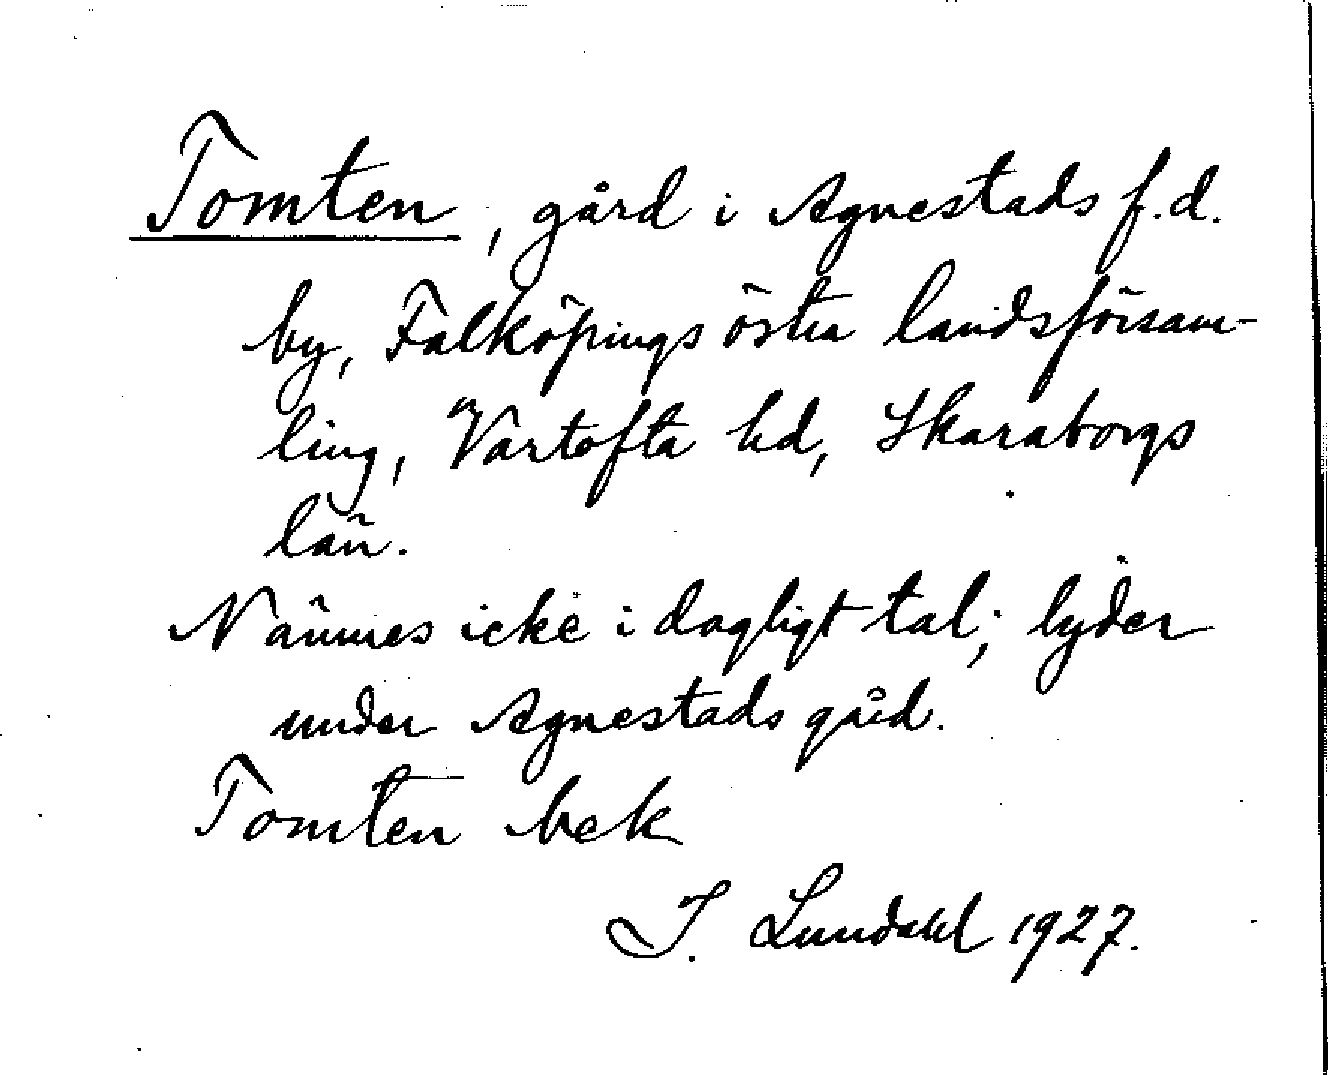 Tomten, gård i Agnestads f.d.
by, Falköpings östra landsförsam-
ling, Vartofta hd, Skaraborgs
län.
Nämnes icke i dagligt tal; lyder
under Agnestads gård.
Tomten bek
I. Lundahl 1927.